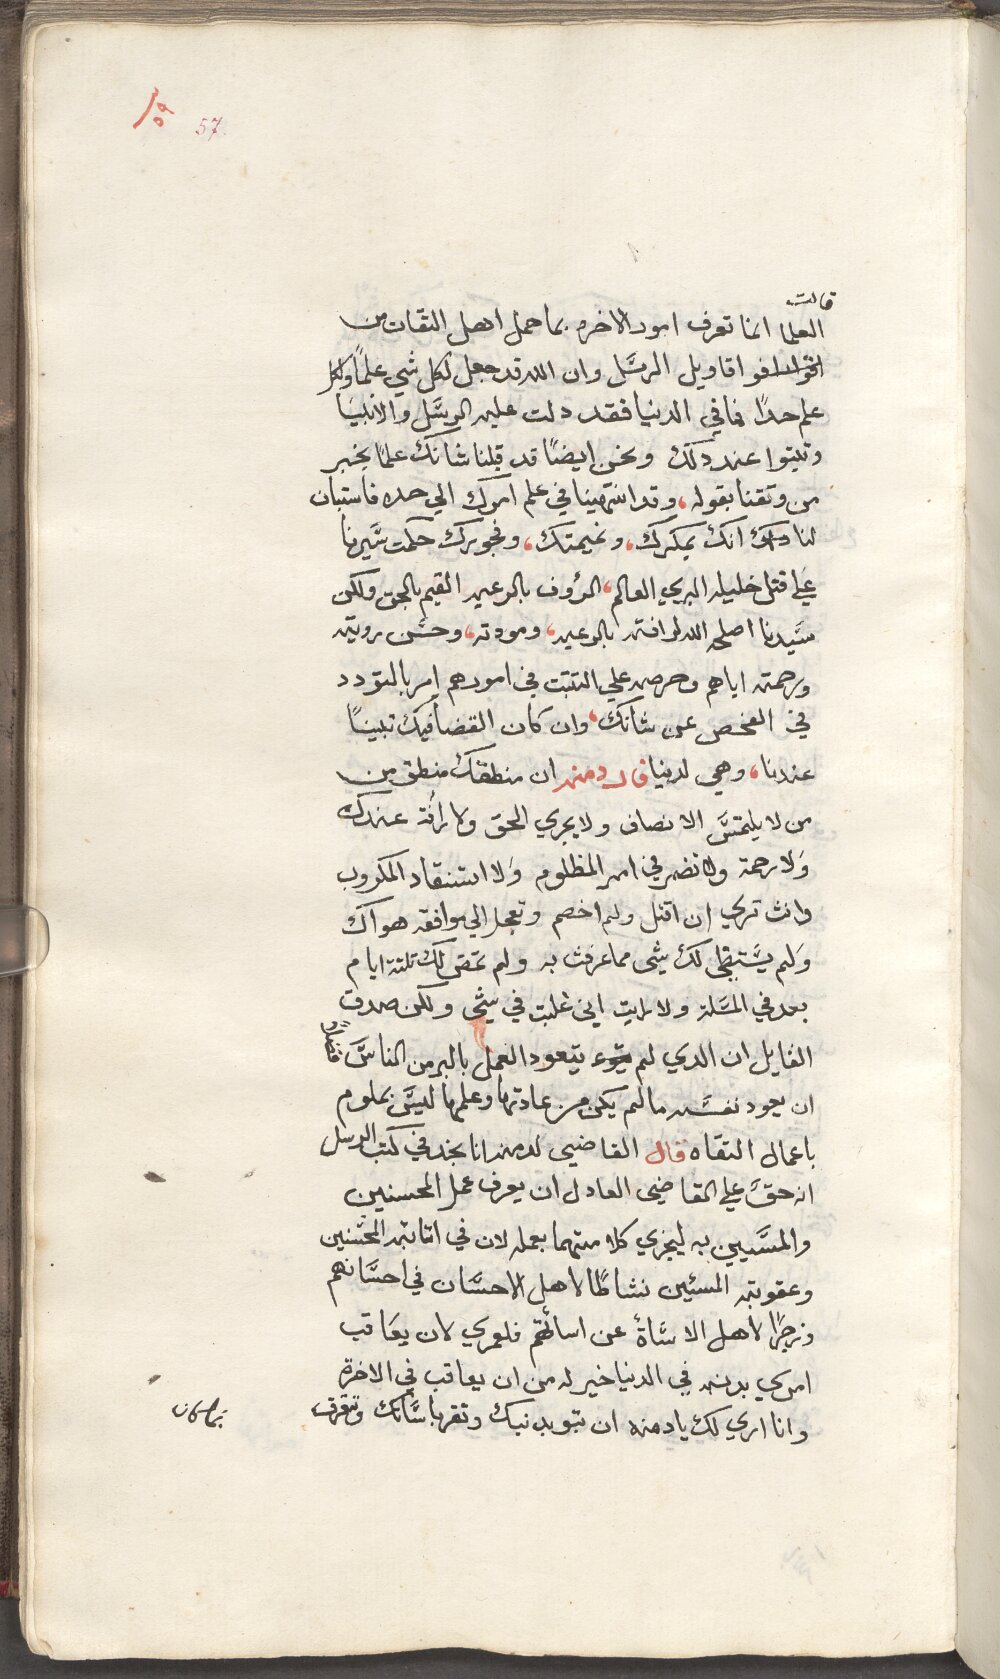 ٥٩ 57
قالت
العلما انما تعرف امور الاخره بما حمل اهل الثقات من
اقاويل الرسَّل وان الله قد جعل لكل شي علمًا ولكل
علم حدًا فما في الدنيا فقد دلت عليه الرسَّل والانبيَا
وتثبتوا عند ذلك ونحن ايضًا قد قبلنا شانك علمًا بخبر
من وثقنا بقوله، وقد انتهينا في علم امرك الي حده فاستبان
لنا انك بمكرك، ونميمتك، وفجورك حكمت سَّيرنا
علي قتل خليله البري العالم، الرؤف بالرعيه القيم بالحق ولكن
سَّيدنا اصلحه الله لرافته بالرعيه، ومودته، وحسَّن رويته
ورحمته اياهم وحرصه علي التثبت في امورهم امر بالتودد
في الفحص عن شانك، وان كان القضا فيك تبينًا
عندنا، وهي لدينا قال دمنه ان منطقك منطق من
من لا يلتمسَّ الانصاف ولا يجري الحق ولا رافة عندك
وَلا رحمة ولا تضر في امر المظلوم وَلا استنقاد المكروب
وانت تري ان اقتل ولم اخصم وتعجل الي موافقه هواك
وَلم يسَّتبطي لك شي مما عرفت به ولم تمض لك ثلثة ايام
بعد في المسَّلة ولا رايت اني غلبت في شي ولكن صدق
القايل ان الدي لم يتعود العمل بالبر من الناسَّ
ان يعود نفسَّه ما لم يكن من عادتها وعلمها ليسَّ بملوم
باعمال التقاه قال القاضي لدمنه انا نجد في كتب الرسل
انه حقَّ علي القاضي العادل ان يعرف عمل المحسنين
والمسَّيين به ليجزي كلا منهما بعمله لان في اثابته المحسنين
وعقوبته المسئين نشاطًا لاهل الاحسَّان في احسَّانهم
وزجرًا لاهل الاسَّاة عن اسائتهم فلعمري لان يعَاقب
امري بدنبه في الدنيا خير له من ان يعاقب في الاخرة
وانا اري لك يا دمنه ان تتوب دنبك وتقر باسَّاتك وتعترف
بما كان